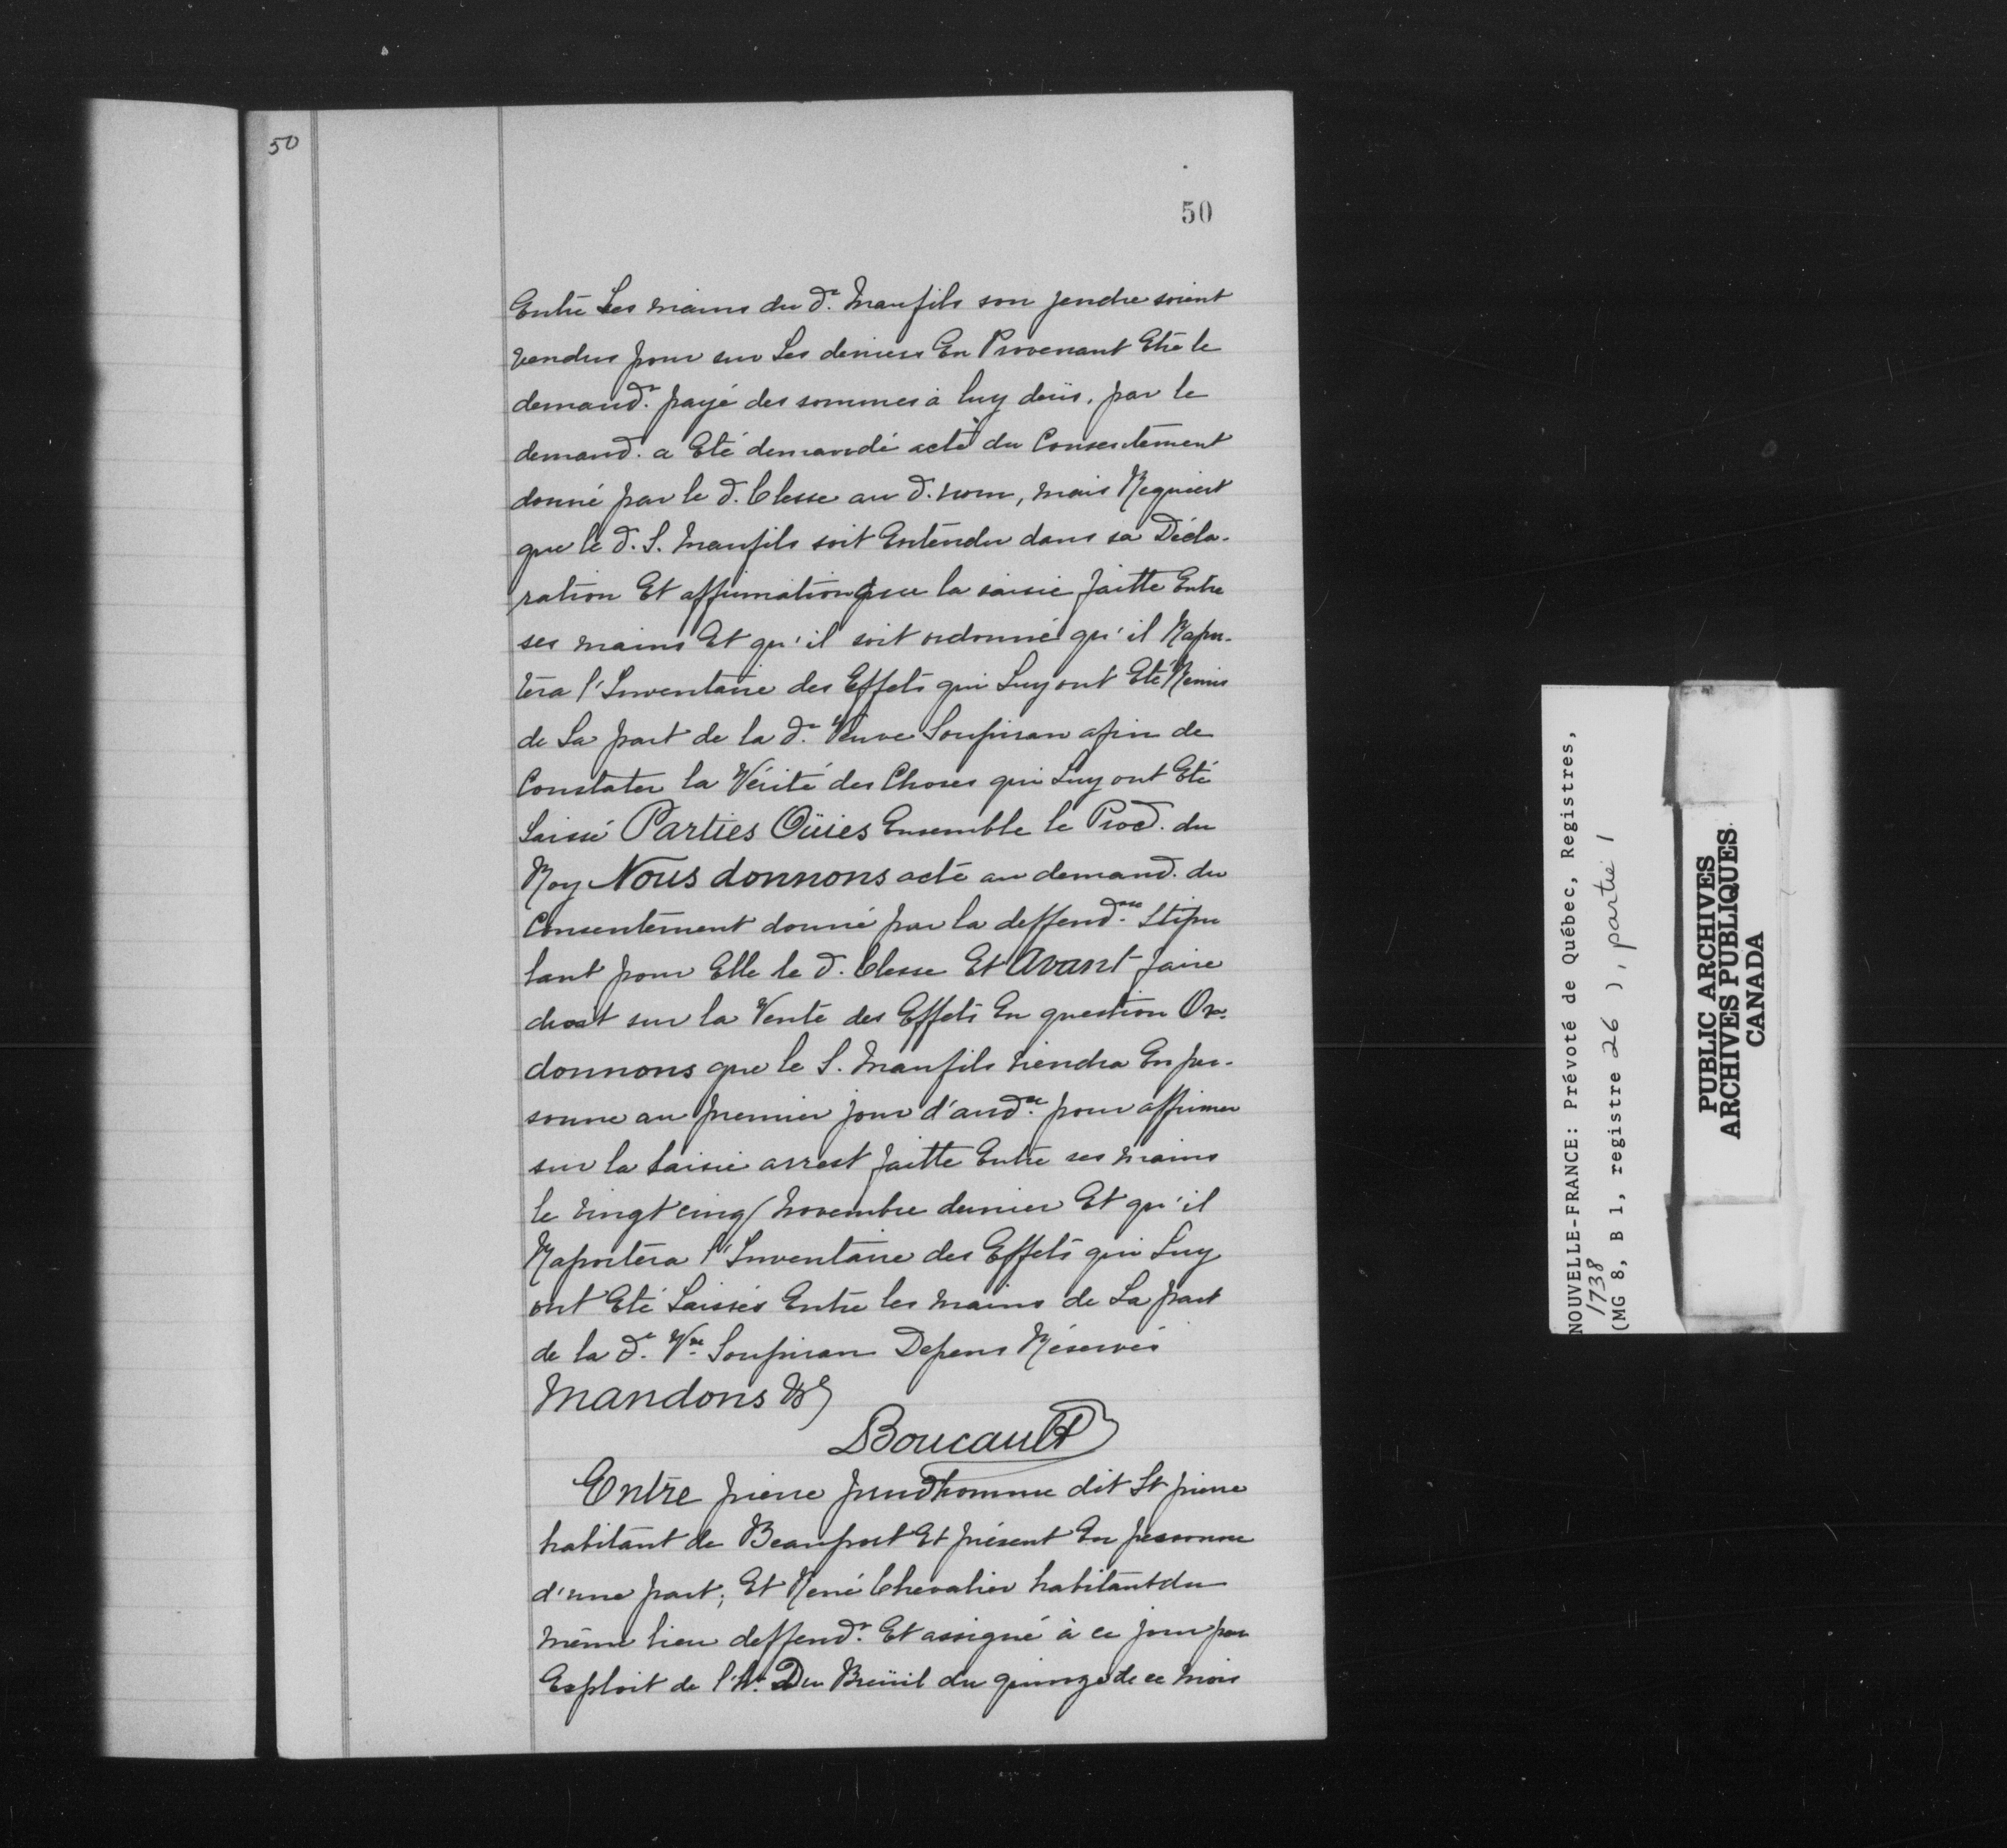 50
50
Entre Les mains du d.r Maufils son jendre soient
vendus pour sur Les deniers En Provenant Etre le
demand.r payé des sommes à luy deüs, par le
demand. a Eté demandé acte du Consentement
donné par le d. Clesse au d. nom, mais Requiert
que le d. S. Maufils soit Entendu dans sa Décla-
ration Et affirmation sur la saisie faitte Entre
ses mains Et qu'il soit ordonné qu'il Rapor-
tera l'Inventaire des Effets qui Luy ont Eté Remis
de La part de la d.e Veuve Soupiran afin de
Constater la Vérité des Choses qui Luy ont Eté
Laissé Parties Oüies Ensemble le Proc. du
Roy Nous donnons acte au demand. du
Consentement donné par la deffend.sse Stipu
lant pour Elle le d. Clesse Et Avant faire
droit sur la Vente des Effets En question Or-
donnons que le S. Maufils viendra En per-
sonne au premier jour d'aud.ce pour affirmer
sur la Saisie arrest faitte Entre ses mains
le vingt cinq Novembre dernier Et qu'il
Raportera l'Inventaire des Effets qui Luy
ont Eté Laissés Entre les mains de La part
de la d.e V.ve Soupiran Depens Réservés
Mandons &
Boucault
Entre pierre prudhomme dit St pierre
habitant de Beauport Et présent En personne
d'une part; Et René Chevalier habitant du
même lieu deffend.r Et assigné à ce jour par
Exploit de l'h.r Du Breüil du quinze de ce mois
NOUVELLE-FRANCE: Prévoté de Québec, Registres,
1738
(MG 8, B 1, registre 26 ), partie 1
PUBLIC ARCHIVES
ARCHIVES PUBLIQUES
CANADA